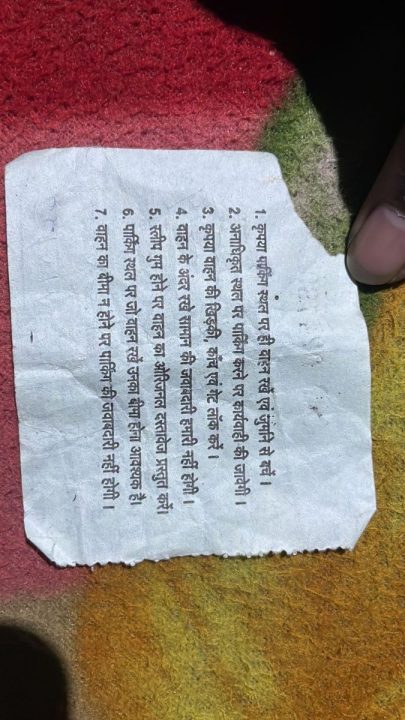 1. कृपया पार्किंग स्थल पर ही वाहन रखें एवं जुर्माने से बचें ।
2. अनाधिकृत स्थल पर पार्किंग करने पर कार्यवाही की जावेगी ।
3. कृपया वाहन की खिड़की, काँच एवं गेट लाक करें ।
4. वाहन के अंदर रखे सामान की जवाबदारी हमारी नहीं होगी ।
5. स्लीप गुम होने पर वाहन का ओरिजनल दस्तावेज प्रस्तुत करें।
6. पार्किंग स्थल पर जो वाहन रखें उनका बीमा होना आवश्यक है।
7. वाहन का बीमा न होने पर पार्किंग की जवाबदारी नहीं होगी ।